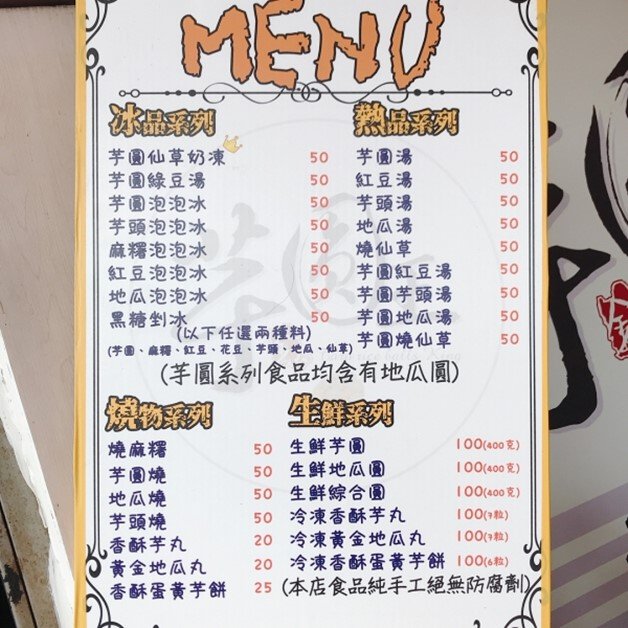 MENU
冰品系列
芋圓仙草奶凍 50
芋圓綠豆湯 50
芋圓泡泡冰 50
芋頭泡泡冰 50
麻糬泡泡冰 50
紅豆泡泡冰 50
地瓜泡泡冰 50
黑糖剉冰 50
(以下任選兩種料)
(芋圓、麻糬、紅豆、花豆、芋頭、地瓜、仙草)
熱品系列
芋圓湯 50
紅豆湯 50
芋頭湯 50
地瓜湯 50
燒仙草 50
芋圓紅豆湯 50
芋圓芋頭湯 50
芋圓地瓜湯 50
芋圓燒仙草 50
(芋圓系列食品均含有地瓜圓)
燒物系列
燒麻糬 50
芋圓燒 50
地瓜燒 50
芋頭燒 50
香酥芋丸 20
黃金地瓜丸 20
香酥蛋黃芋餅 25
生鮮系列
生鮮芋圓 100(400克)
生鮮地瓜圓 100(400克)
生鮮綜合圓 100(400克)
冷凍香酥芋丸 100(7粒)
冷凍黃金地瓜丸 100(7粒)
冷凍香酥蛋黃芋餅 100(6粒)
(本店食品純手工絕無防腐劑)